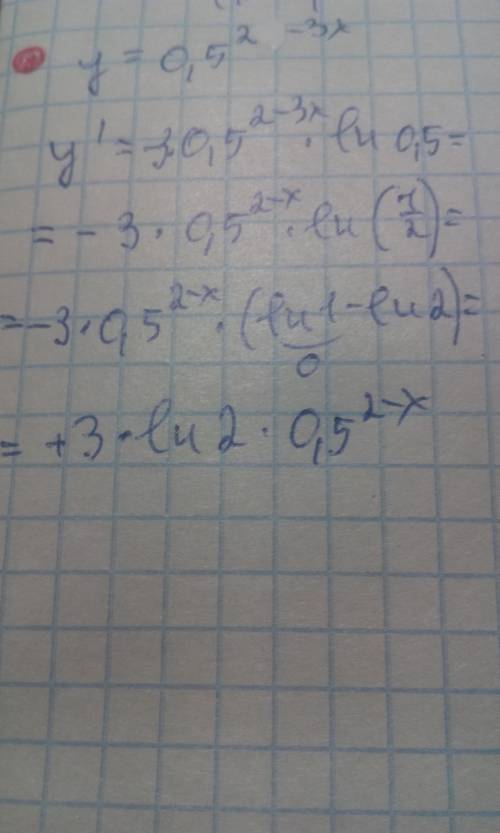 y = 0,5^{2 -3x}
y' = -3 0,5^{2-3x} · ln 0,5 =
= - 3 · 0,5^{2-x} · ln (1/2) =
= -3 · 0,5^{2-x} · (ln 1 - ln 2) =
0
= +3 · ln 2 · 0,5^{2-x}